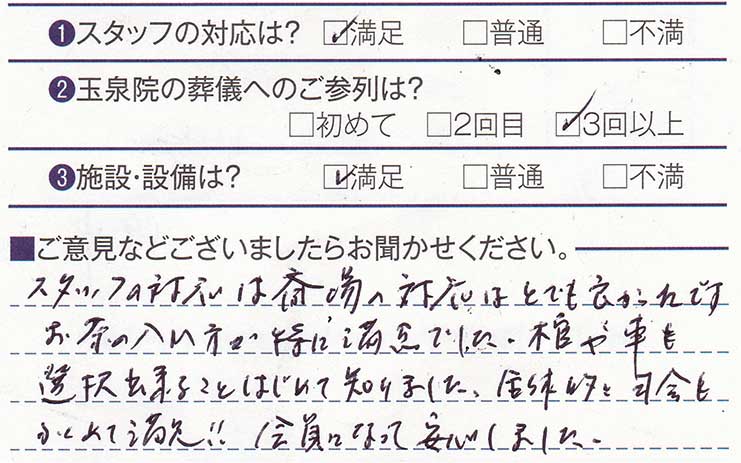 ❶スタッフの対応は? ☑満足 □普通 □不満
❷玉泉院の葬儀へのご参列は?
□初めて □2回目 ☑3回以上
❸施設・設備は? ☑満足 □普通 □不満
■ご意見などございましたらお聞かせください。
スタッフの対応は斎場の対応はとても良かったです
お茶の入れ方が特に満点でした。棺や車も
選択出来ることはじめて知りました。全体的に司会も
ふくめて満足!! 会員になって安心しました。